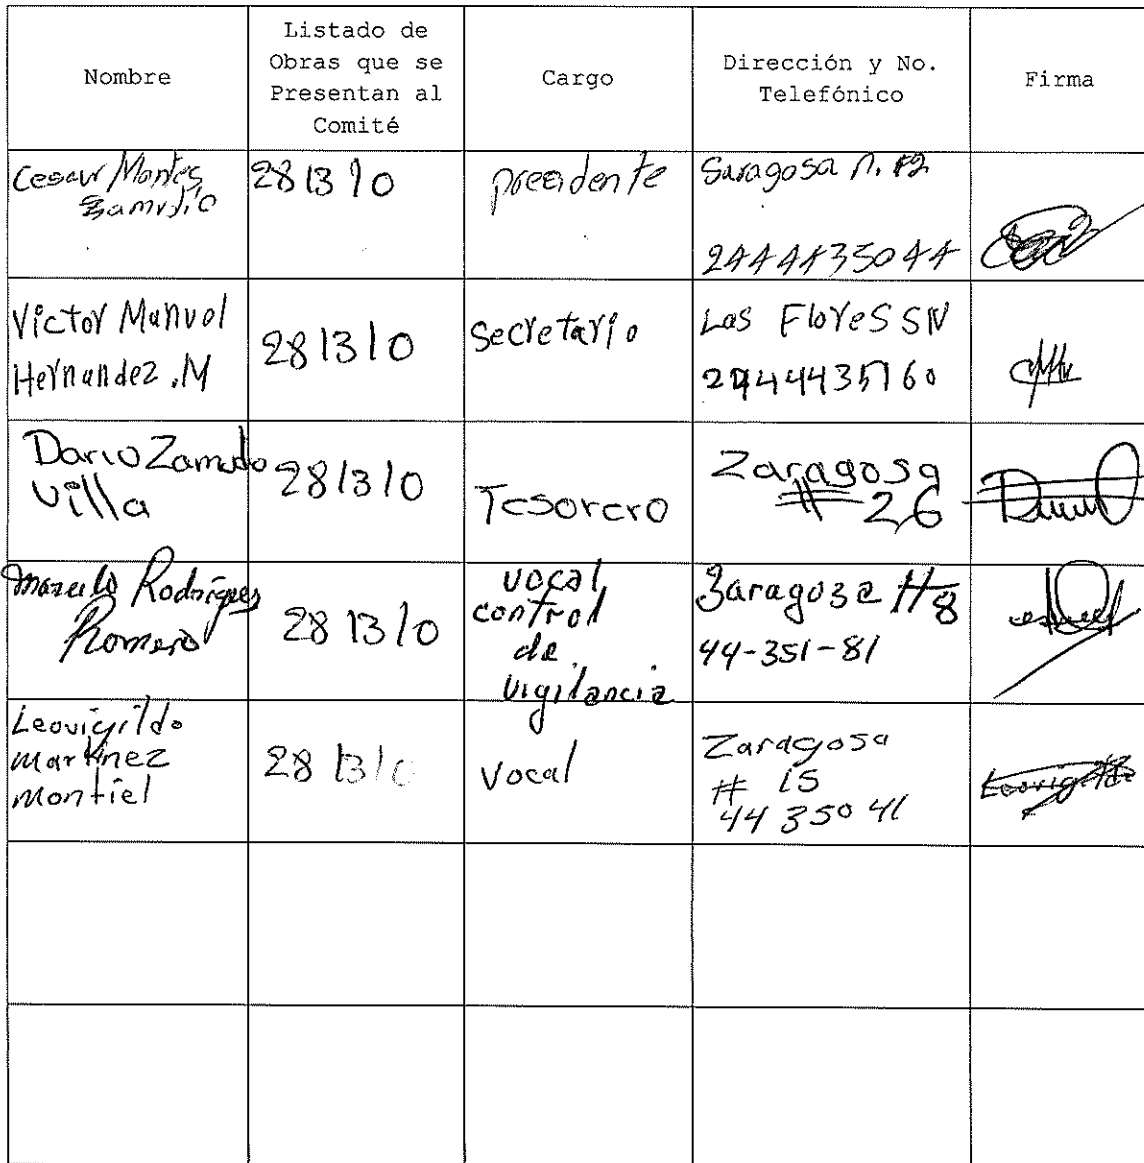 Nombre
Listado de
Obras que se
Presentan al
Comité
Cargo
Dirección y No.
Telefónico
Firma
Cesar Montes
Zamudio
281310
presidente
Saragosa n.
2444435044
Victor Manuel
Hernandez .M
281310
Secretario
Las Flores SN
2444435160
Dario Zamudo
Villa
281310
Tesorero
Zaragosa
# 26
Marcelo Rodrigues
Romero
281310
vocal
control
de
vigilancia
Zaragoza #8
44-351-81
Leovigildo
martinez
montiel
281310
Vocal
Zaragosa
# 15
44 350 41
Leovigildo